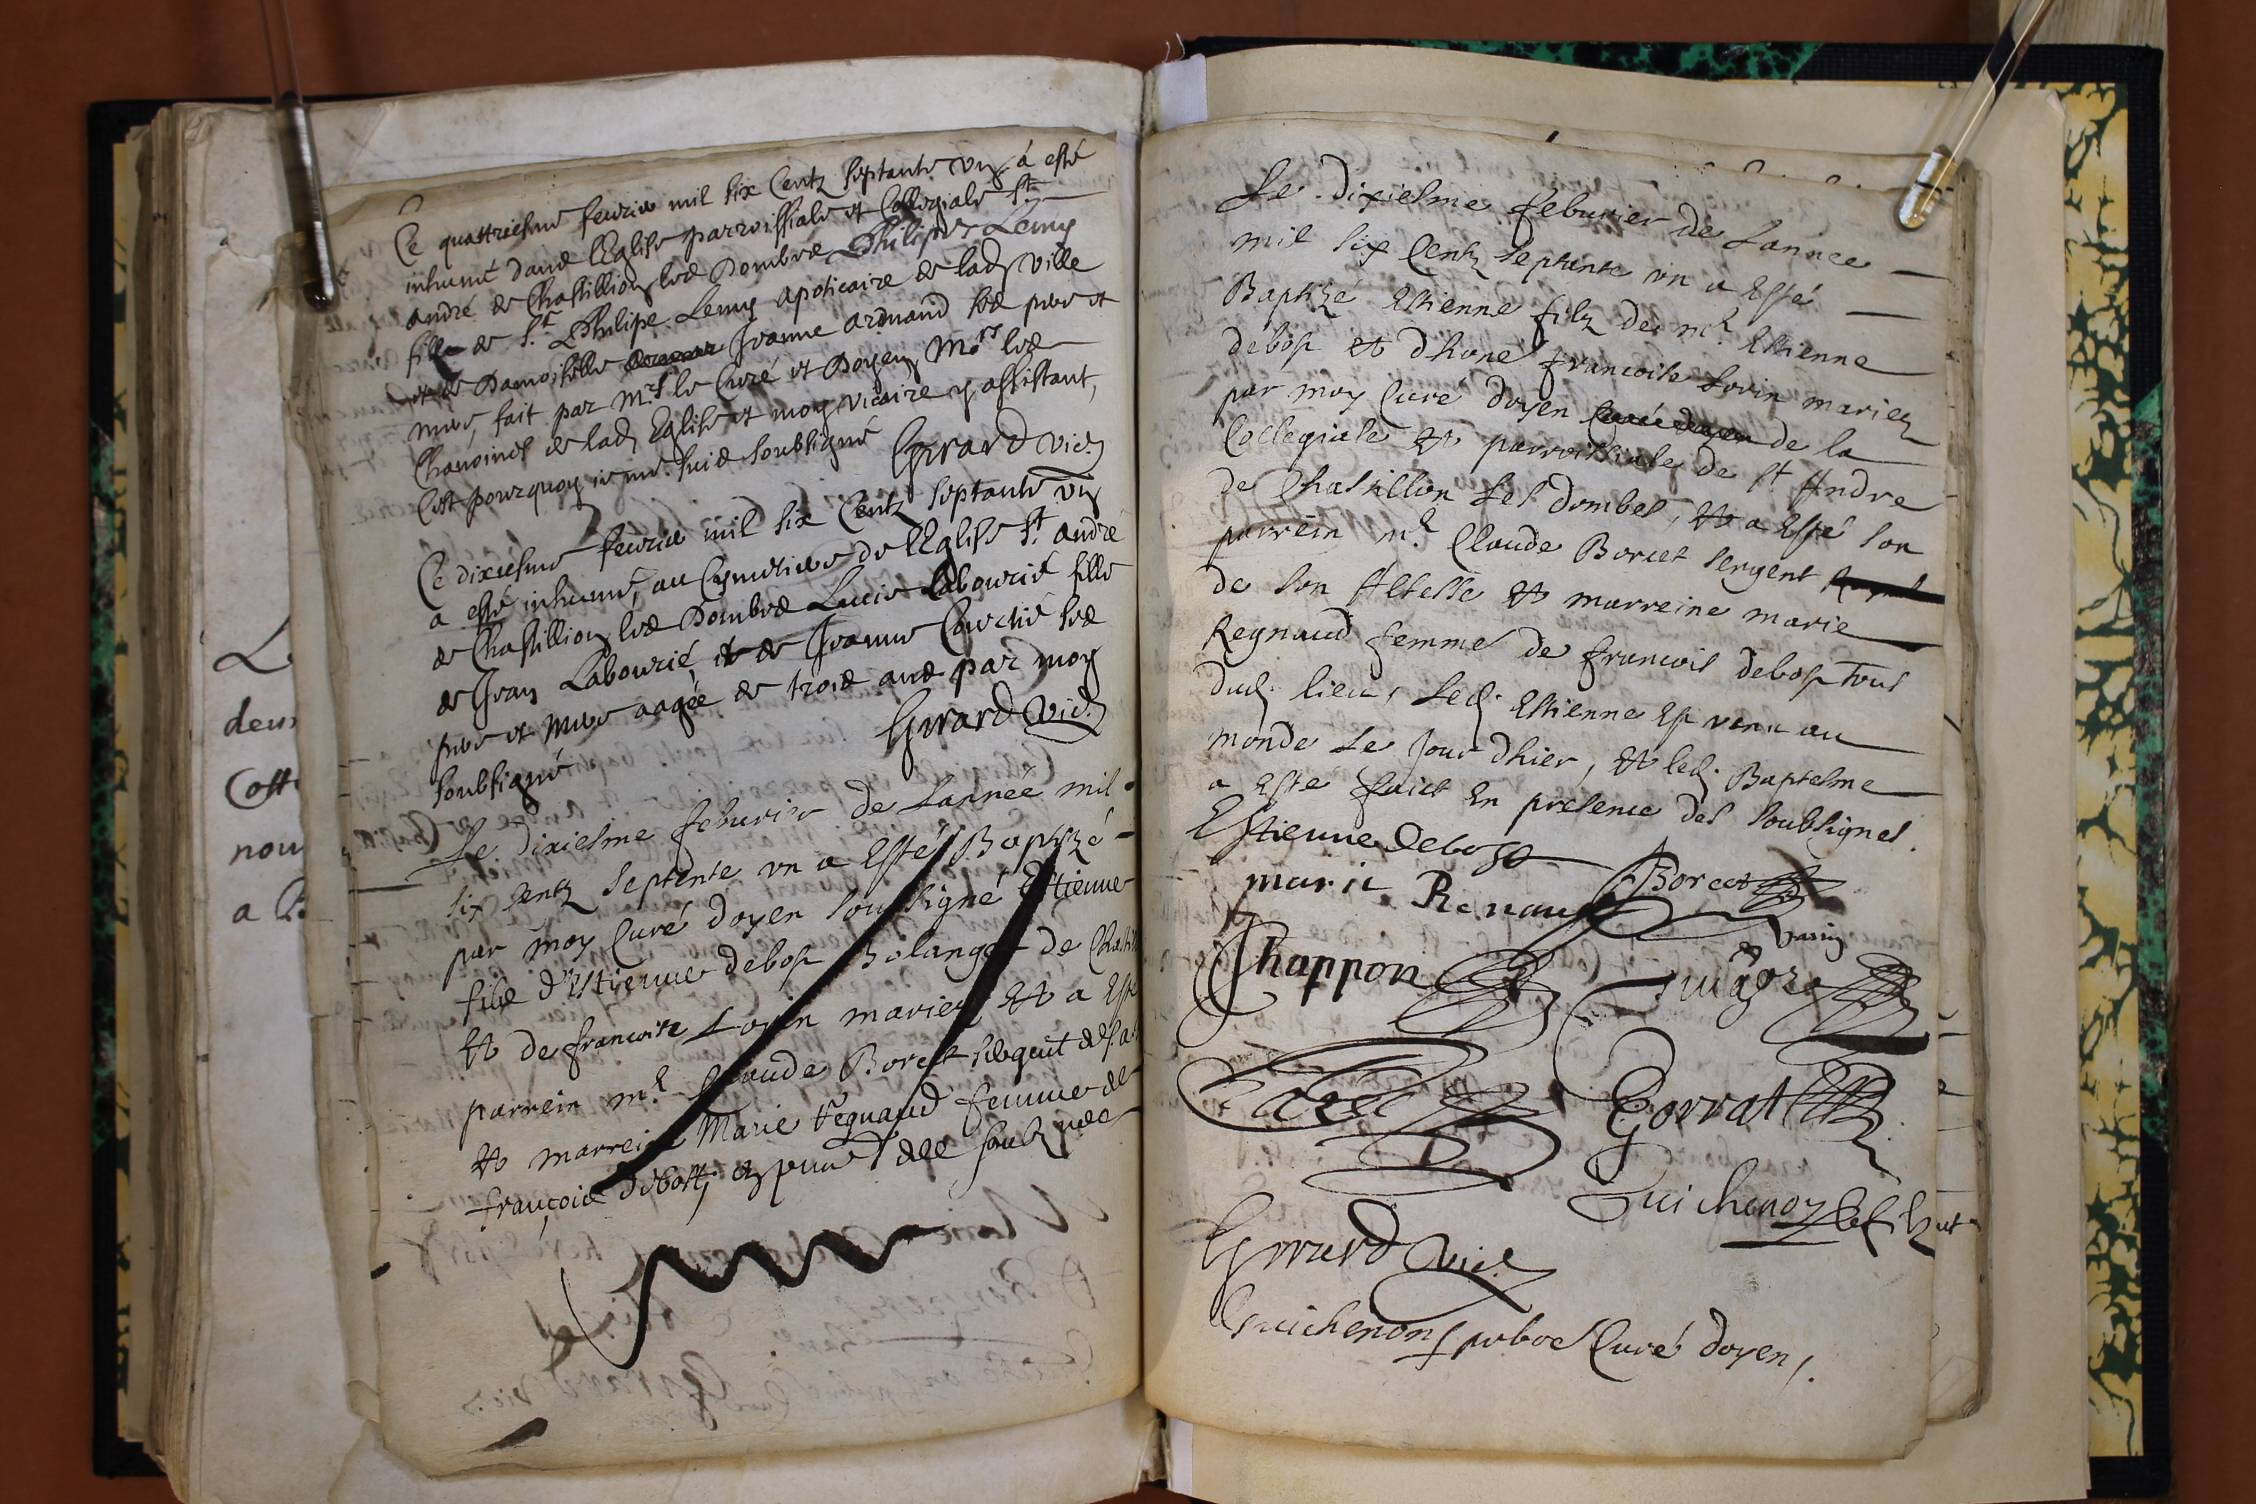 Ce quattriesme feurier mil six Centz septante un, a esté
inhumé dans l'Eglise parroissiale et Collegiale St
André de Chastillion les Dombes Philipes Lemy
fille de Sr Philipe Lemy apoticaire de lad ville
et de Damoiselle Jeanne arduand ses pere et
mere, fait par Mrs le Curé et Doyen, Mrs les
Chanoines de lad Eglise et moy vicaire y assistant,
C'est pourquoy ie me suis soubsigné Girard vic.
Ce dixiesme feurier mil six Centz septante un
a esté inhumé, au Cymetiere de l'Eglise St André
de Chastillion les Dombes Lucie Labourié fille
de Jean Labourié, et de Jeanne ses
pere et mere aagée de trois ans par moy
soubsigné Girard vic.
Le dixiesme feburier de Lannee mil
six Centz septante un a Esté Baptizé
par moy Curé doyen soubsigné Estienne
filz d'Estienne debost Bolanger de
Et de francoise Lorin mariez Et a Esté
parrein mr Claude Borcet
Et marreine Marie Regnaud femme de
françois debost, des
Le dixiesme feburier de Lannee
mil six Centz septante un a Esté
Baptizé Estienne filz de mr Estienne
debost et d'hone francoise Lorin mariez
par moy Curé doyen Curé doyen de la
Collegiale et parroissiale de St Andre
de Chastillon Les dombes, et a Esté son
parrein mr Claude Borcet sergent
de son Altesse et marreine marie
Regnaud femme de francois debost tous
dud. lieu, Led. Estienne Est venu au
monde Le Jour d'hier, et led. Baptesme
a Esté faict En presence des soubsignes.
Estienne debost
marie Renau Borcet
Chappon
Corrat
Guichenon
Girard vic.
Guichenon pbre Curé doyen,